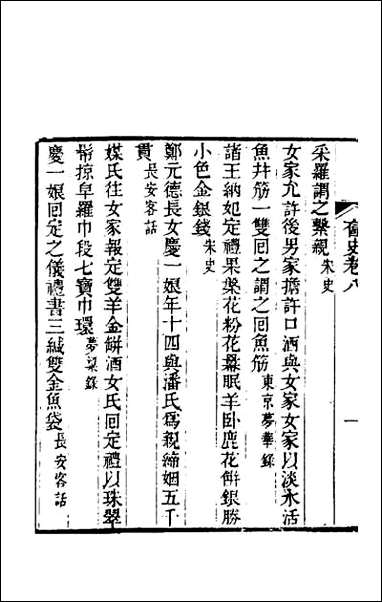 奩史卷八
一
采羅謂之繫親朱史
女家允許後男家擔許口酒與女家女家以淡水活
魚井筋一雙回之謂之回魚筋東京夢華錄
諸王納妃定禮果槃花粉花冪眠羊卧鹿花餅銀勝
小色金銀錢朱史
鄭元德長女慶一娘年十四與潘氏爲親締姻五千
貫長安客話
媒氏往女家報定雙羊金餅酒女氏回定禮以珠翠
帶掠皁羅巾段七寶巾環夢粱錄
慶一娘回定之儀禮書三緘雙金魚袋長安客話